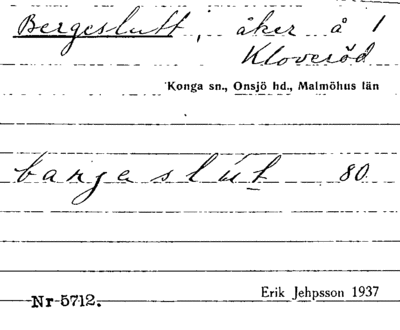 Bergeslutt, åker å 1
Kloveröd
Konga sn., Onsjö hd., Malmöhus län
bargaslút 80
Nr 5712.
Erik Jehpsson 1937